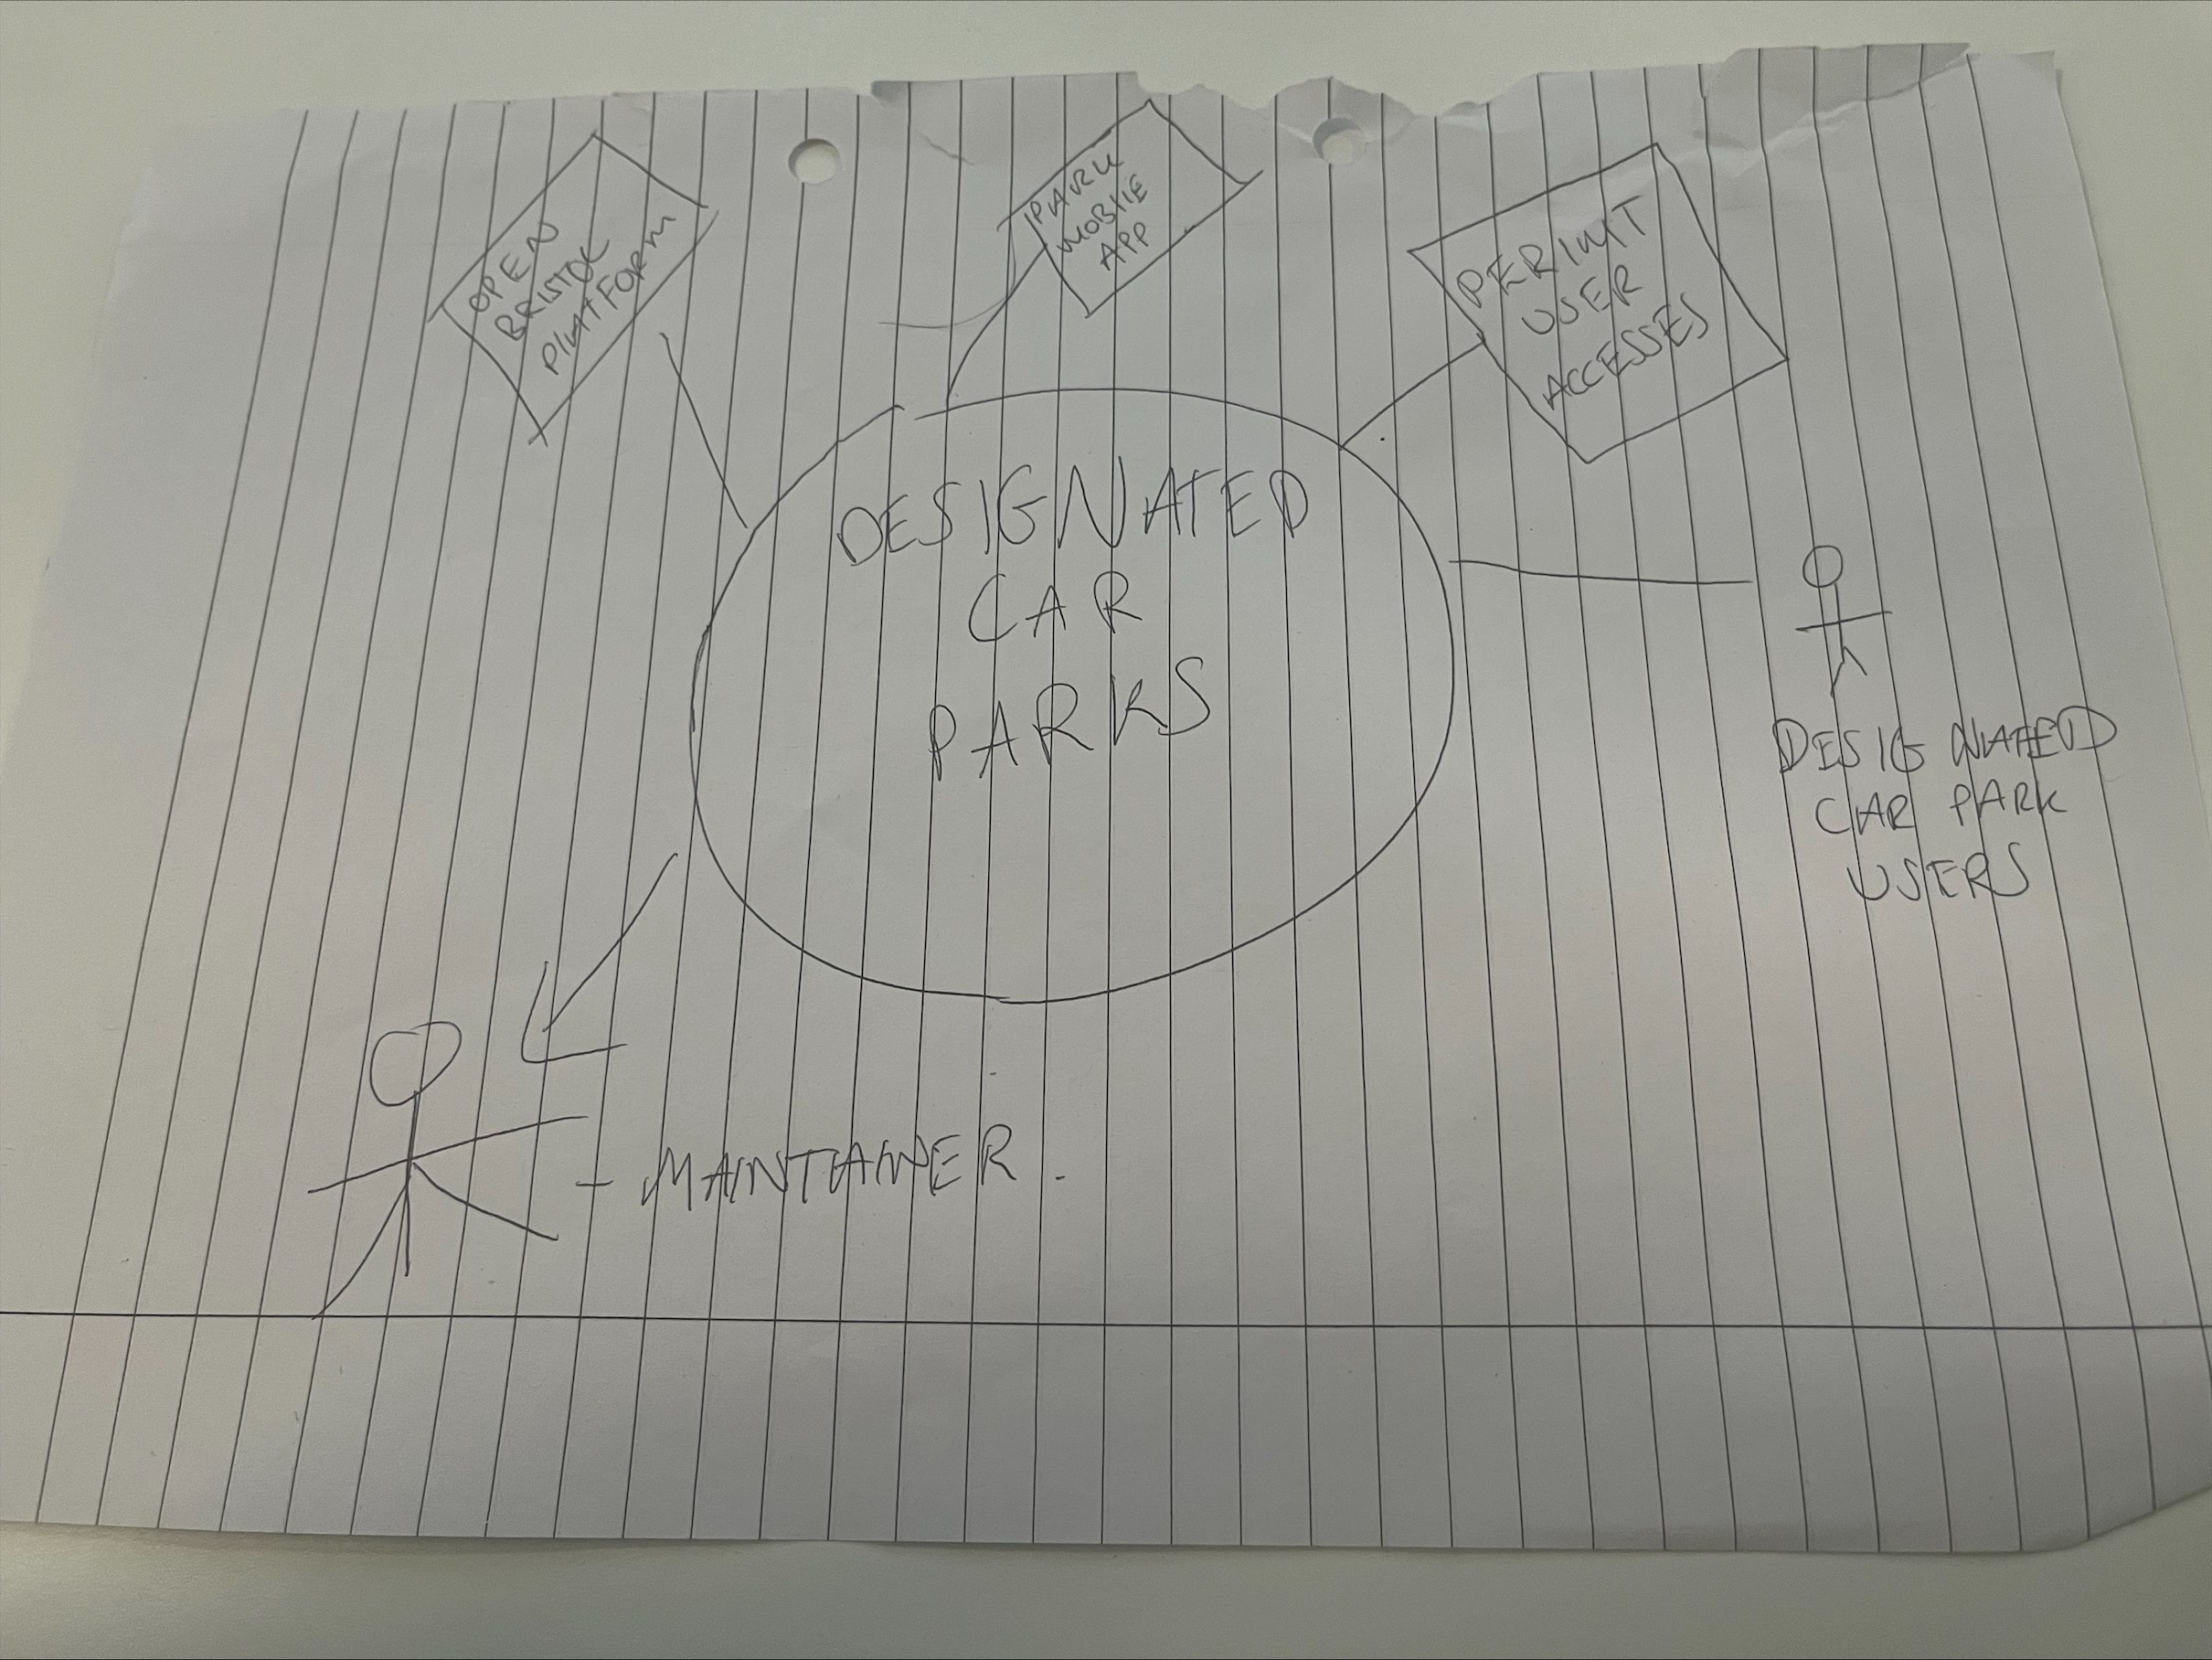 OPEN
BRISTOL
PLATFORM
PARK
MOBLIE
APP
PERIMIT
USER
ACCESSES
DESIGNATED
CAR
PARKS
DESIGNATED
CAR PARK
USERS
- MAINTAINER.